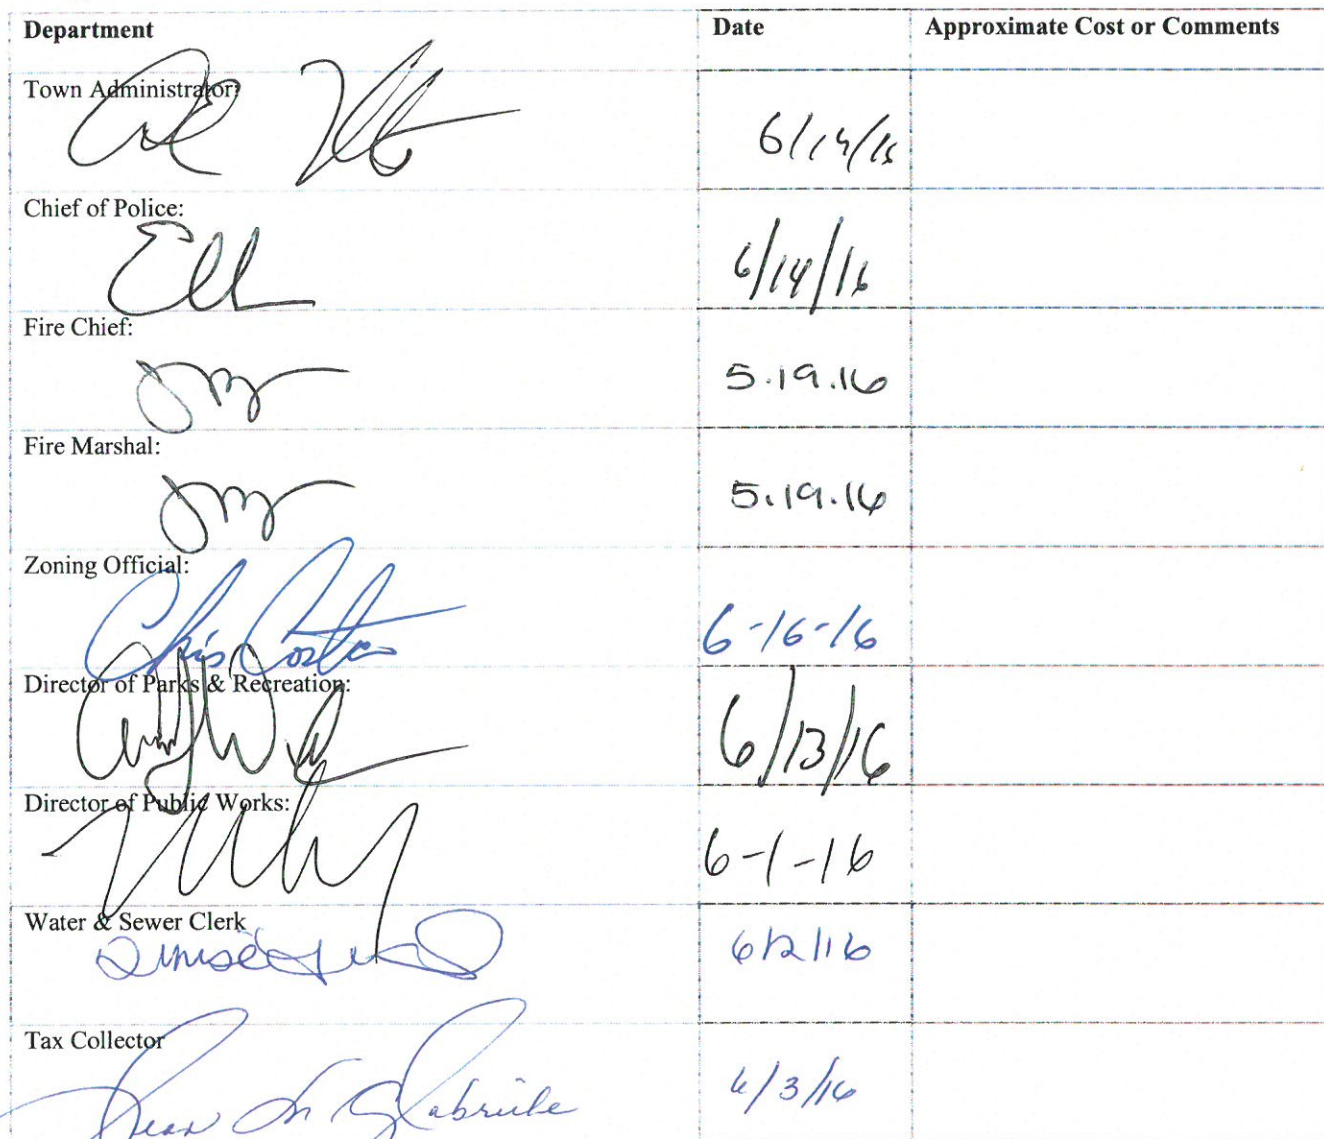 Department Date Approximate Cost or Comments
Town Administrator:
6/14/16
Chief of Police:
6/14/16
Fire Chief:
5.19.16
Fire Marshal:
5.19.16
Zoning Official:
Chris Costa 6-16-16
Director of Parks & Recreation:
6/13/16
Director of Public Works:
6-1-16
Water & Sewer Clerk
6/2/16
Tax Collector
6/3/16